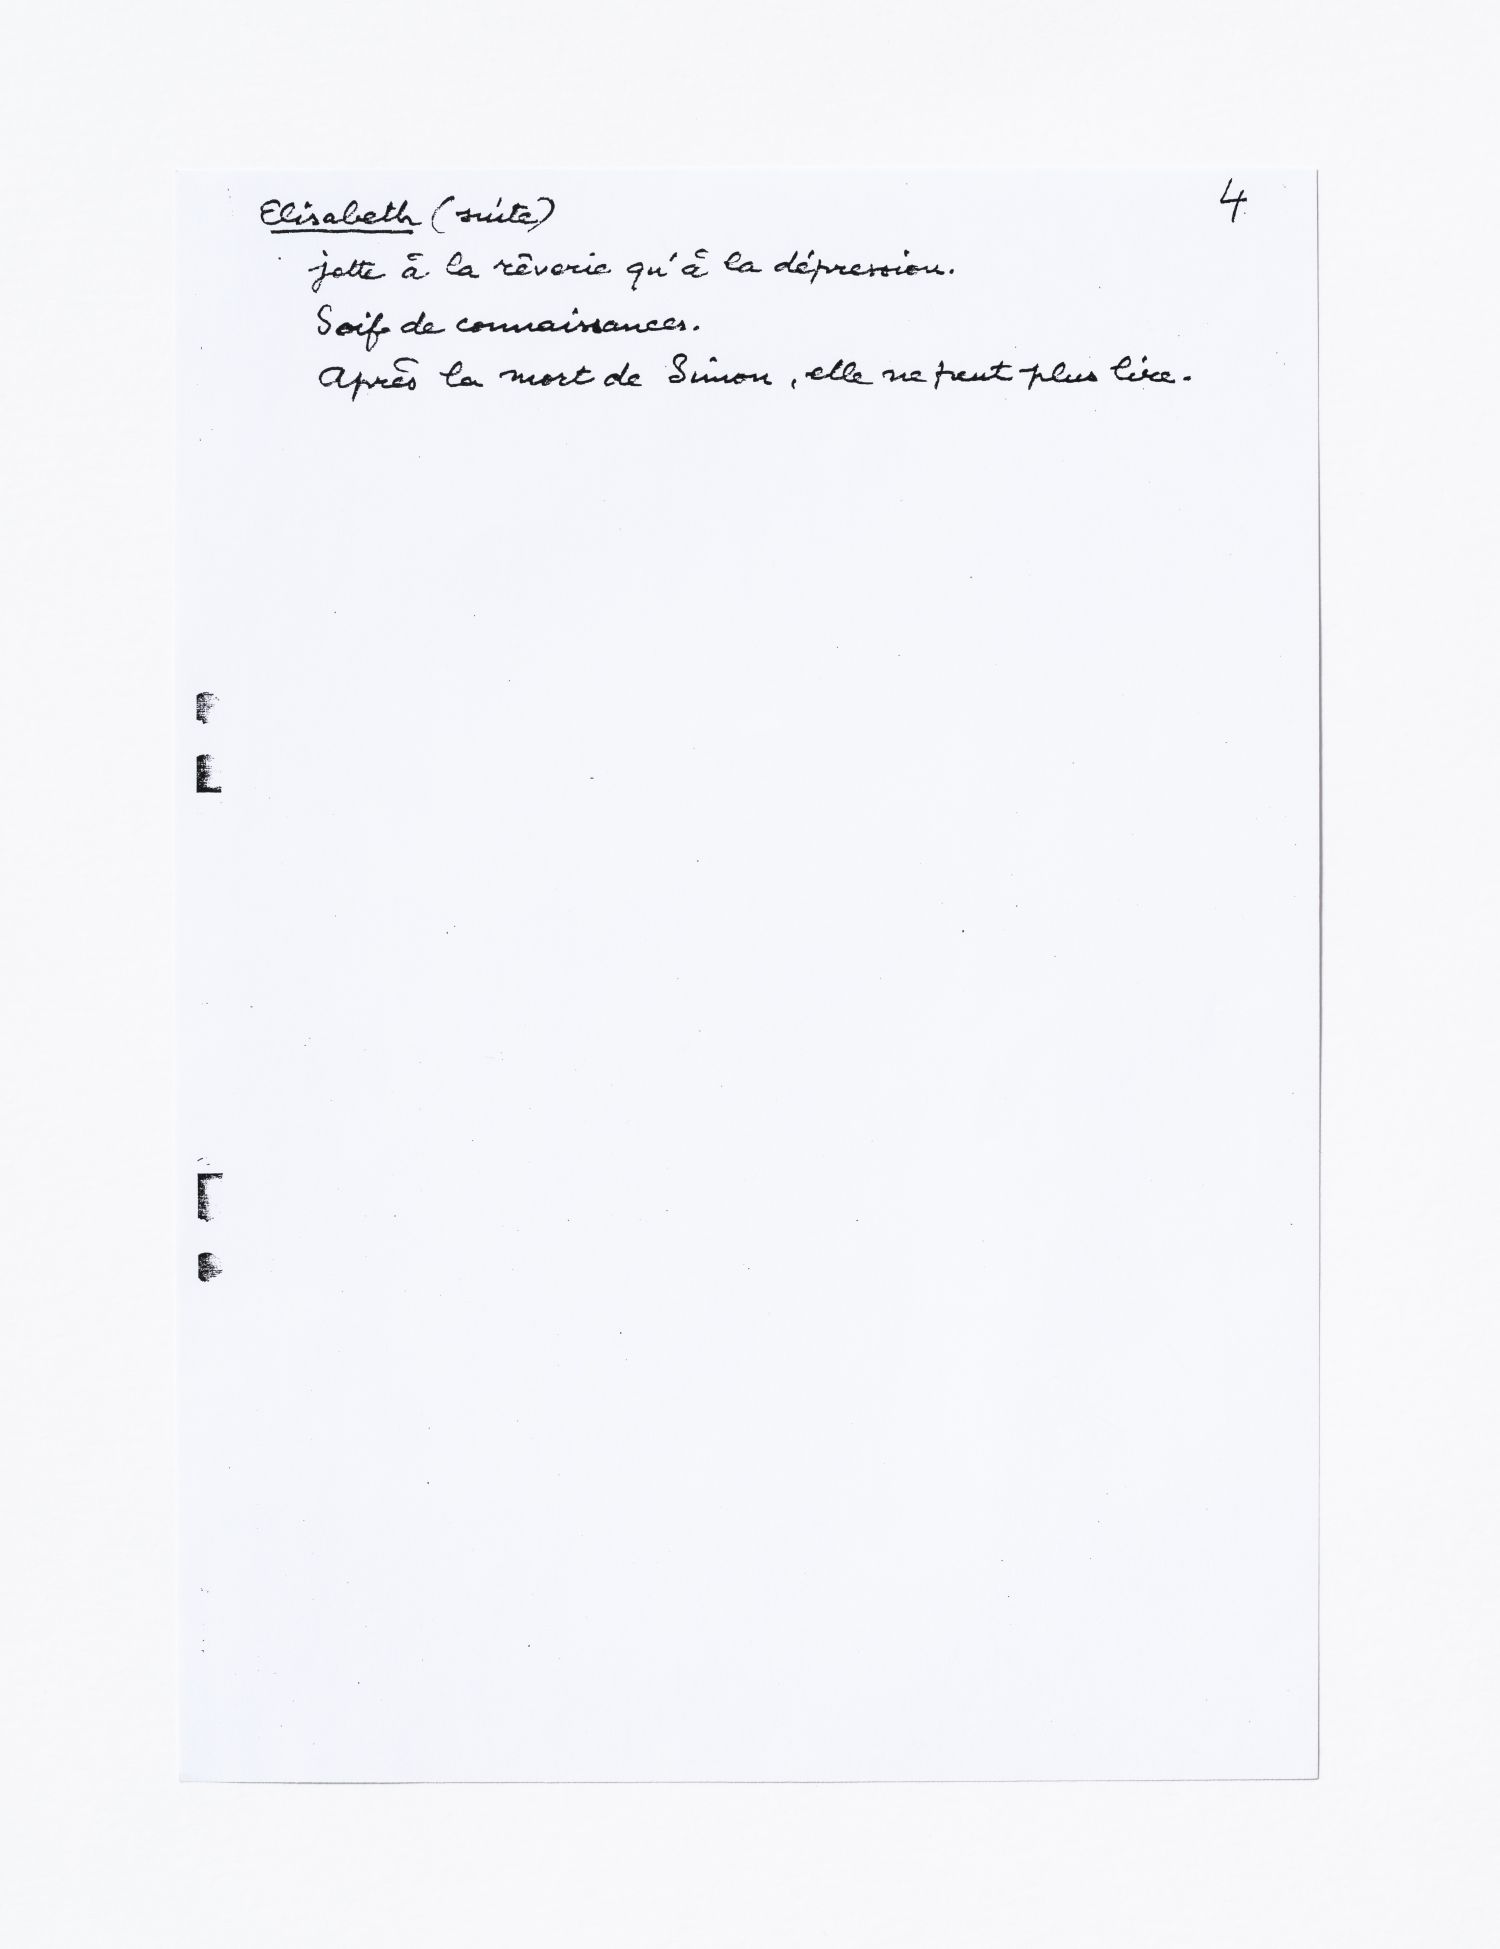 4
Elisabeth (suite)
jette à la rêverie qu'à la dépression.
Soif de connaissances.
Après la mort de Simon, elle ne peut plus lire.